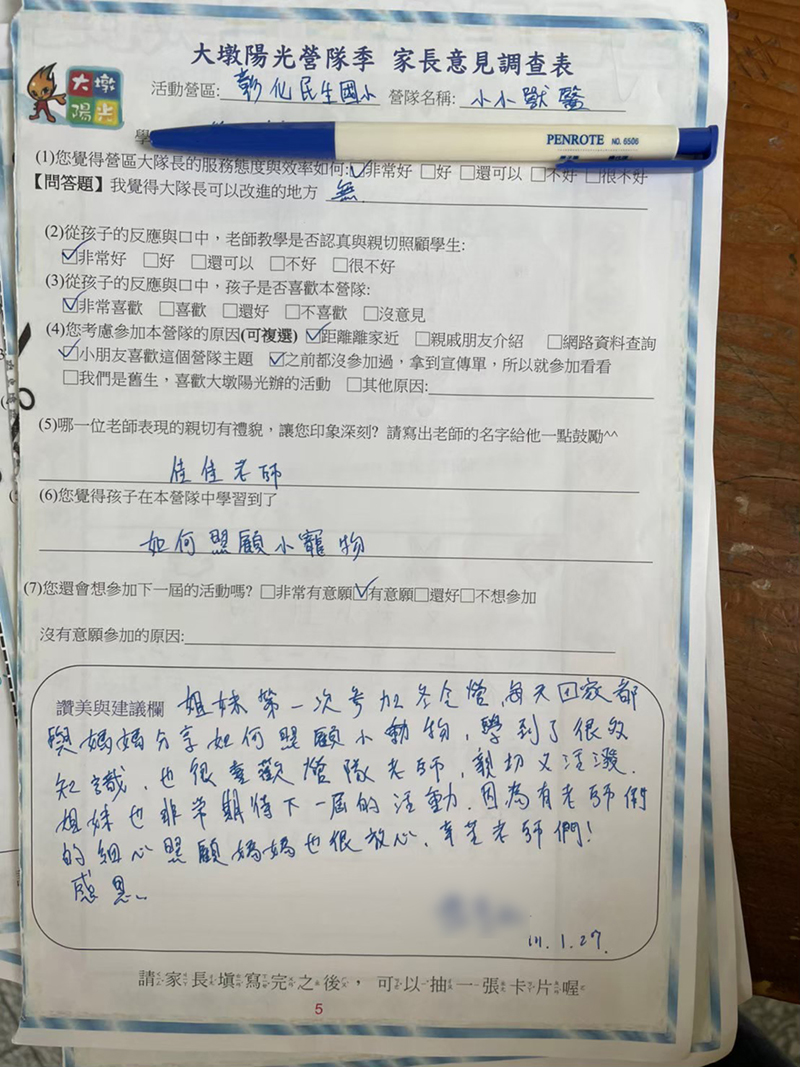 大墩陽光營隊季 家長意見調查表
大墩
陽光
活動營區: 彰化民生國小 營隊名稱: 小小獸醫
學
PENROTE NO. 6506
(1)您覺得營區大隊長的服務態度與效率如何:☑非常好 □好 □還可以 □不好 □很不好
【問答題】我覺得大隊長可以改進的地方 無.
(2)從孩子的反應與口中，老師教學是否認真與親切照顧學生:
☑非常好 □好 □還可以 □不好 □很不好
(3)從孩子的反應與口中，孩子是否喜歡本營隊:
☑非常喜歡 □喜歡 □還好 □不喜歡 □沒意見
(4)您考慮參加本營隊的原因(可複選) ☑距離離家近 □親戚朋友介紹 □網路資料查詢
☑小朋友喜歡這個營隊主題 ☑之前都沒參加過，拿到宣傳單，所以就參加看看
□我們是舊生，喜歡大墩陽光辦的活動 □其他原因:
(5)哪一位老師表現的親切有禮貌，讓您印象深刻? 請寫出老師的名字給他一點鼓勵^^
佳佳老師
(6)您覺得孩子在本營隊中學習到了
如何照顧小寵物
(7)您還會想參加下一屆的活動嗎? □非常有意願☑有意願□還好□不想參加
沒有意願參加的原因:
讚美與建議欄 姐妹第一次參加冬令營,每天回家都
與媽媽分享如何照顧小動物,學到了很多
知識,也很喜歡營隊老師,親切又活潑.
姐妹也非常期待下一屆的活動.因為有老師們
的細心照顧媽媽也很放心,辛苦老師們!
感恩..
111.1.27.
請家長填寫完之後，可以抽一張卡片喔
5